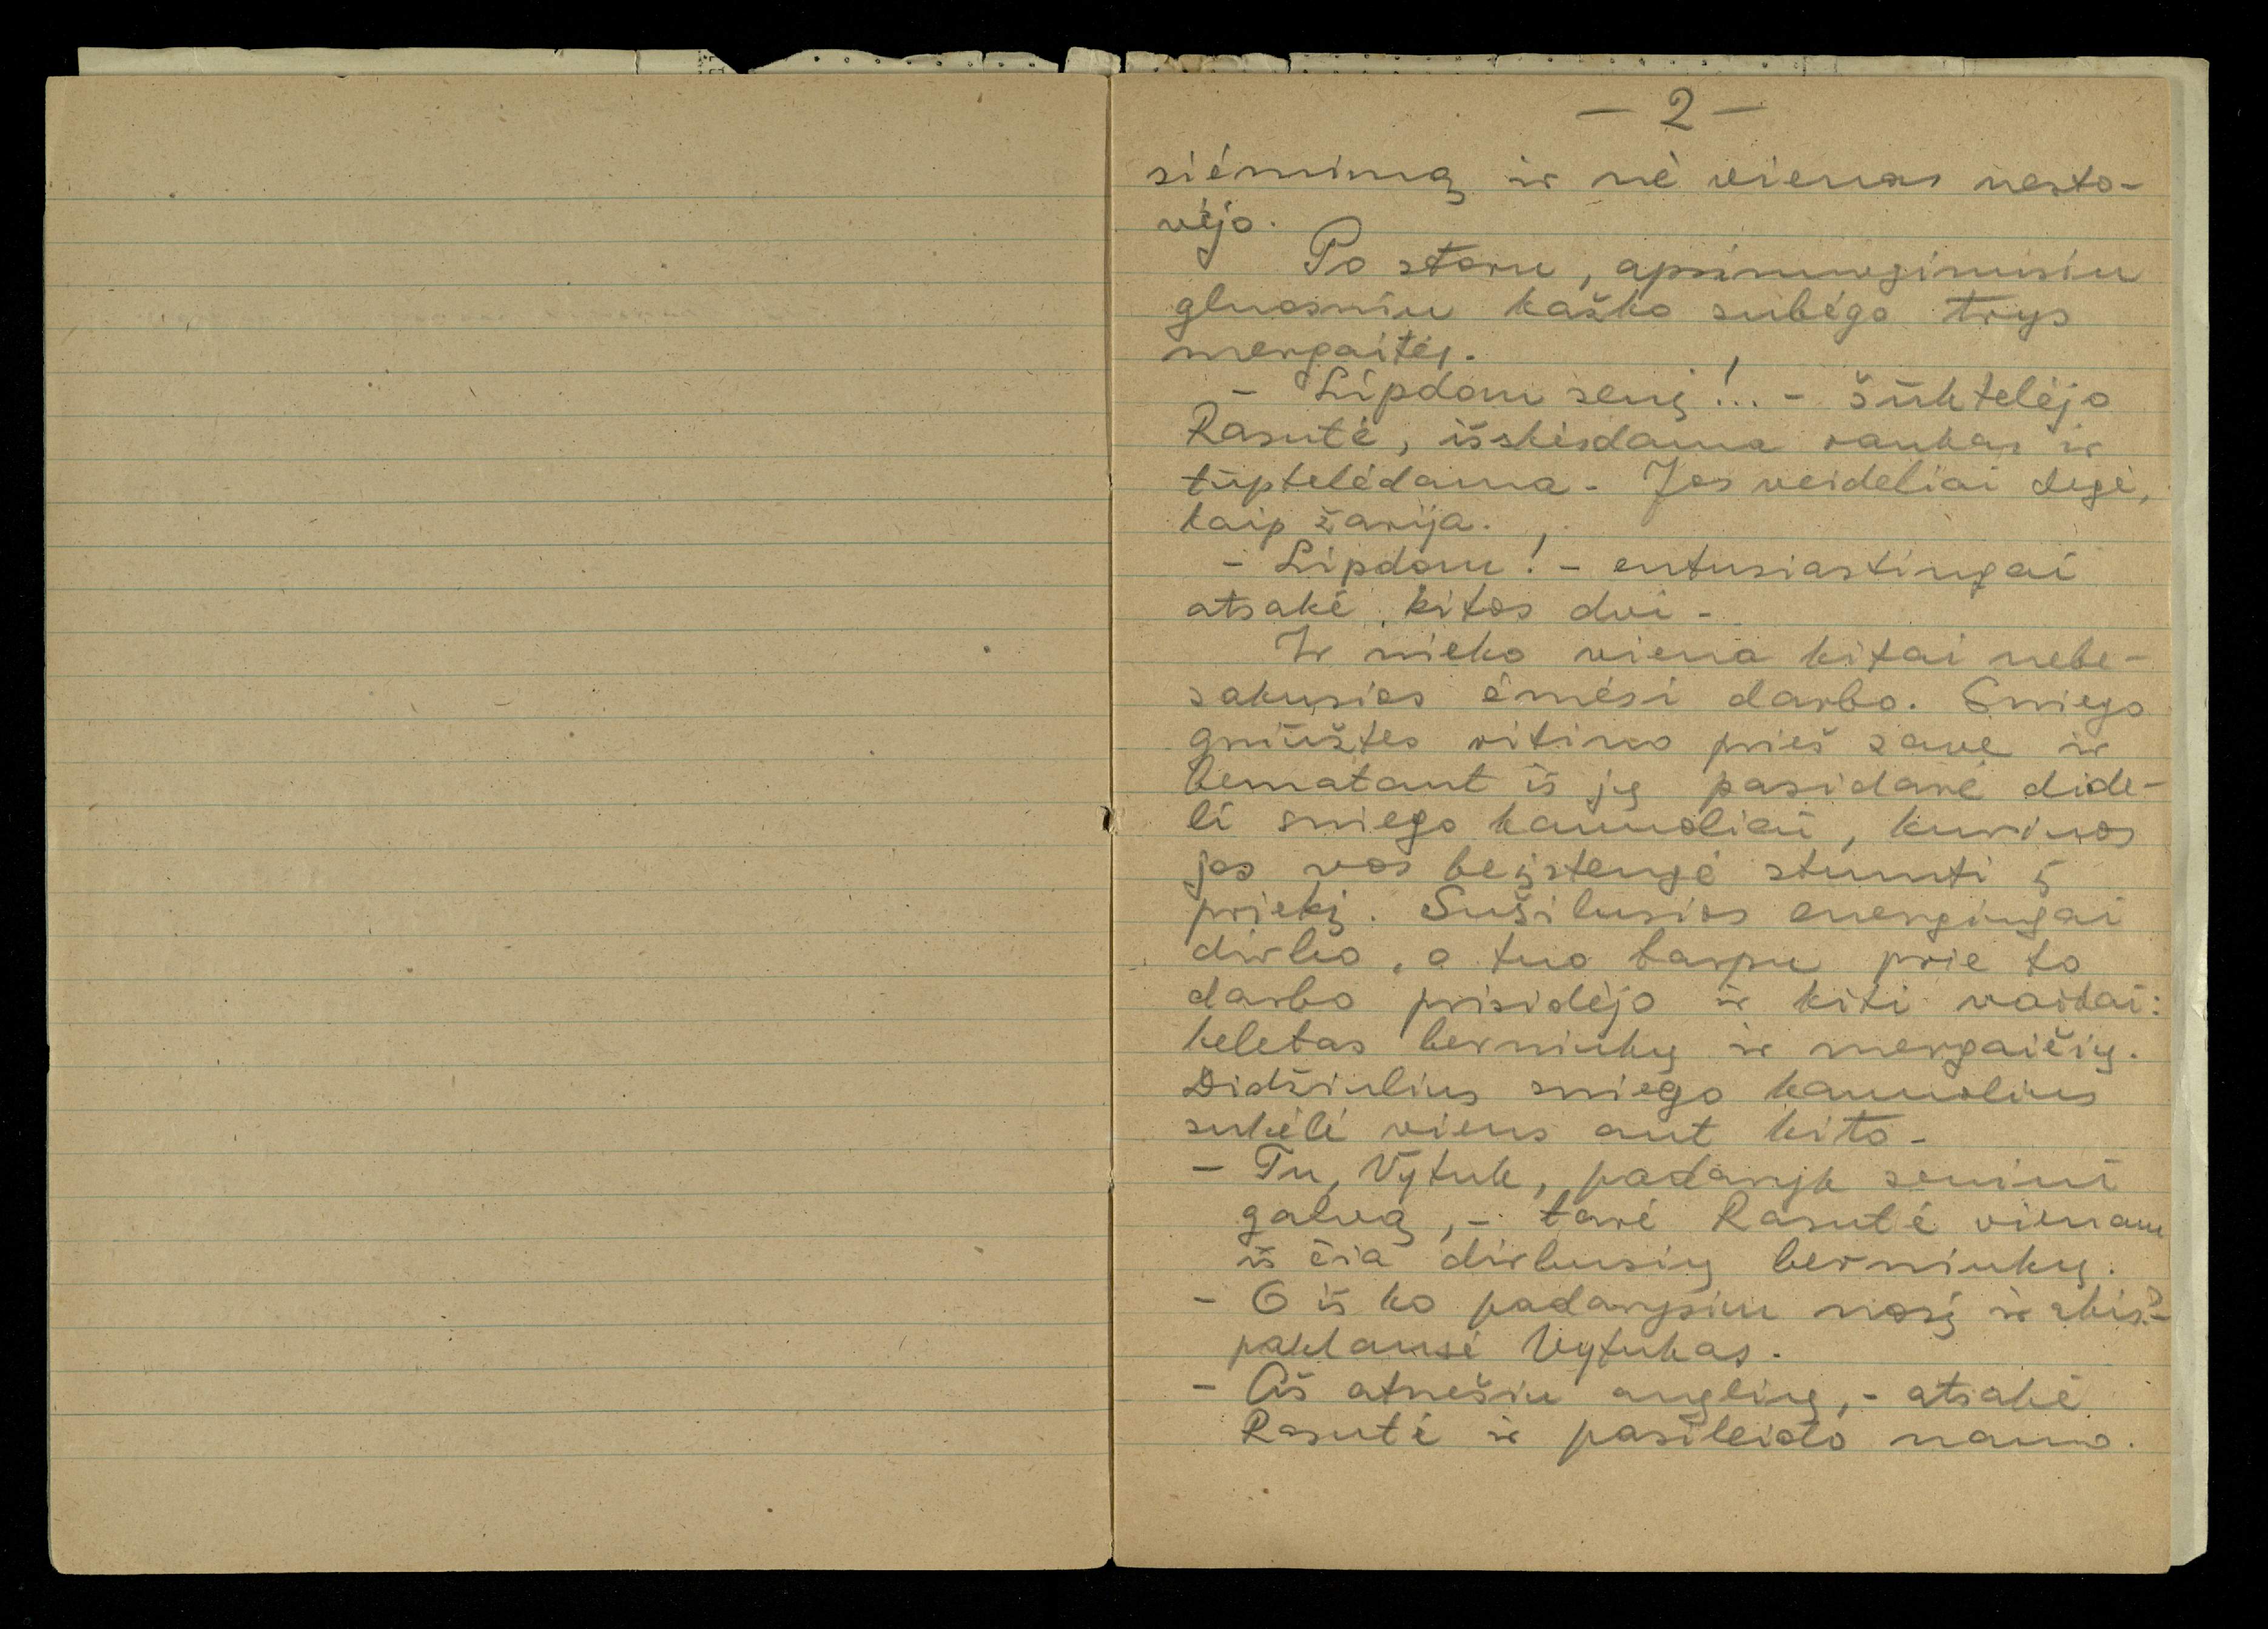 — 2 —
siėmimą ir nė vienas nesto-
vėjo.
Po storu, apsimurginusiu
gluosniu kažko subėgo trys
mergaitės.
- Lipdom senį!... - šūktelėjo
Rasutė, išskėsdama rankas ir
tūptelėdama. Jos veideliai degė,
kaip žarija.
- Lipdom! - entusiastingai
atsakė kitos dvi.
Ir nieko viena kitai nebe-
sakusios ėmėsi darbo. Sniego
gniūžtes ritino prieš save ir
bematant iš jų pasidarė dide-
li sniego kamuoliai, kuriuos
jos vos beįstengė stumti į
priekį. Sušilusios energingai
dirbo, o tuo tarpu prie to
darbo prisidėjo ir kiti vaikai:
keletas berniukų ir mergaičių.
Didžiulius sniego kamuolius
sukėlė viens ant kito.
- Tu, Vytuk, padaryk seniui
galvą, - tarė Rasutė vienam
iš čia dirbusių berniukų.
- O iš ko padarysiu nosį ir akis? -
paklausė Vytukas.
- Aš atnešiu anglių, - atsakė
Rasutė ir pasileido namo.